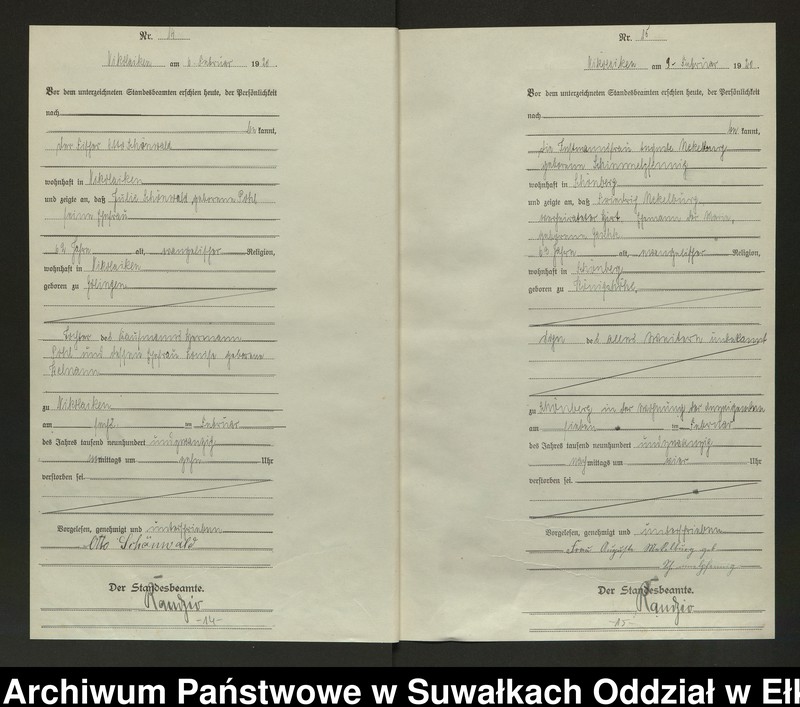 Nr. 14
Nikolaiken am 6 Februar 1920.
Vor dem unterzeichneten Standesbeamten erschien heute, der Persönlichkeit
nach
be kannt,
der Otto Schönwald
wohnhaft in Nikolaiken
und zeigte an, daß Julie Schönwald geborene Pohl
seine Ehefrau
62 Jahre alt, evangelischer Religion,
wohnhaft in Nikolaiken
geboren zu
Tochter des Kaufmanns Hermann
Pohl und dessen Ehefrau Louise geborene
zu Nikolaiken
am im Februar
des Jahres tausend neunhundert undzwanzig
mittags um zehn Uhr
verstorben sei.
Vorgelesen, genehmigt und unterschrieben
Otto Schönwald
Der Standesbeamte.
Kandzio
-14-
Nr. 15
Nikolaiken am 9. Februar 1920.
Vor dem unterzeichneten Standesbeamten erschien heute, der Persönlichkeit
nach
be kannt,
die Auguste Mekelburg
geborene Schimmelpfennig
wohnhaft in Schönberg
und zeigte an, daß Friedrich Mekelburg,
verheirateter Hirt, Ehemann der
geborene
63 Jahre alt, evangelischer Religion,
wohnhaft in Schönberg
geboren zu Königshöhe,
Sohn des unbekannt
zu Schönberg in der Wohnung der Anzeigenden
am sieben im Februar
des Jahres tausend neunhundert undzwanzig
nachmittags um vier Uhr
verstorben sei.
Vorgelesen, genehmigt und unterschrieben
Frau Auguste Mekelburg geb
Schimmelpfennig
Der Standesbeamte.
Kandzio
-15-
Archiwum Państwowe w Suwałkach Oddział w Ełk